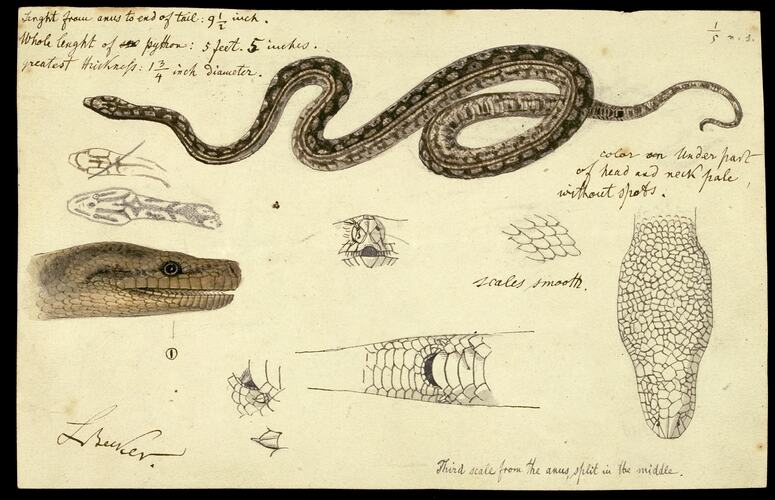 Lenght from anus to end of tail: 9 1/2 inch.
Whole lenght of python: 5 feet. 5 inches.
greatest thickness: 1 3/4 inch diameter.
1/5 n. s.
color on Under part
of head and neck pale,
without spots.
scales smooth.
1
L Becker.
Third scale from the anus, split in the middle.